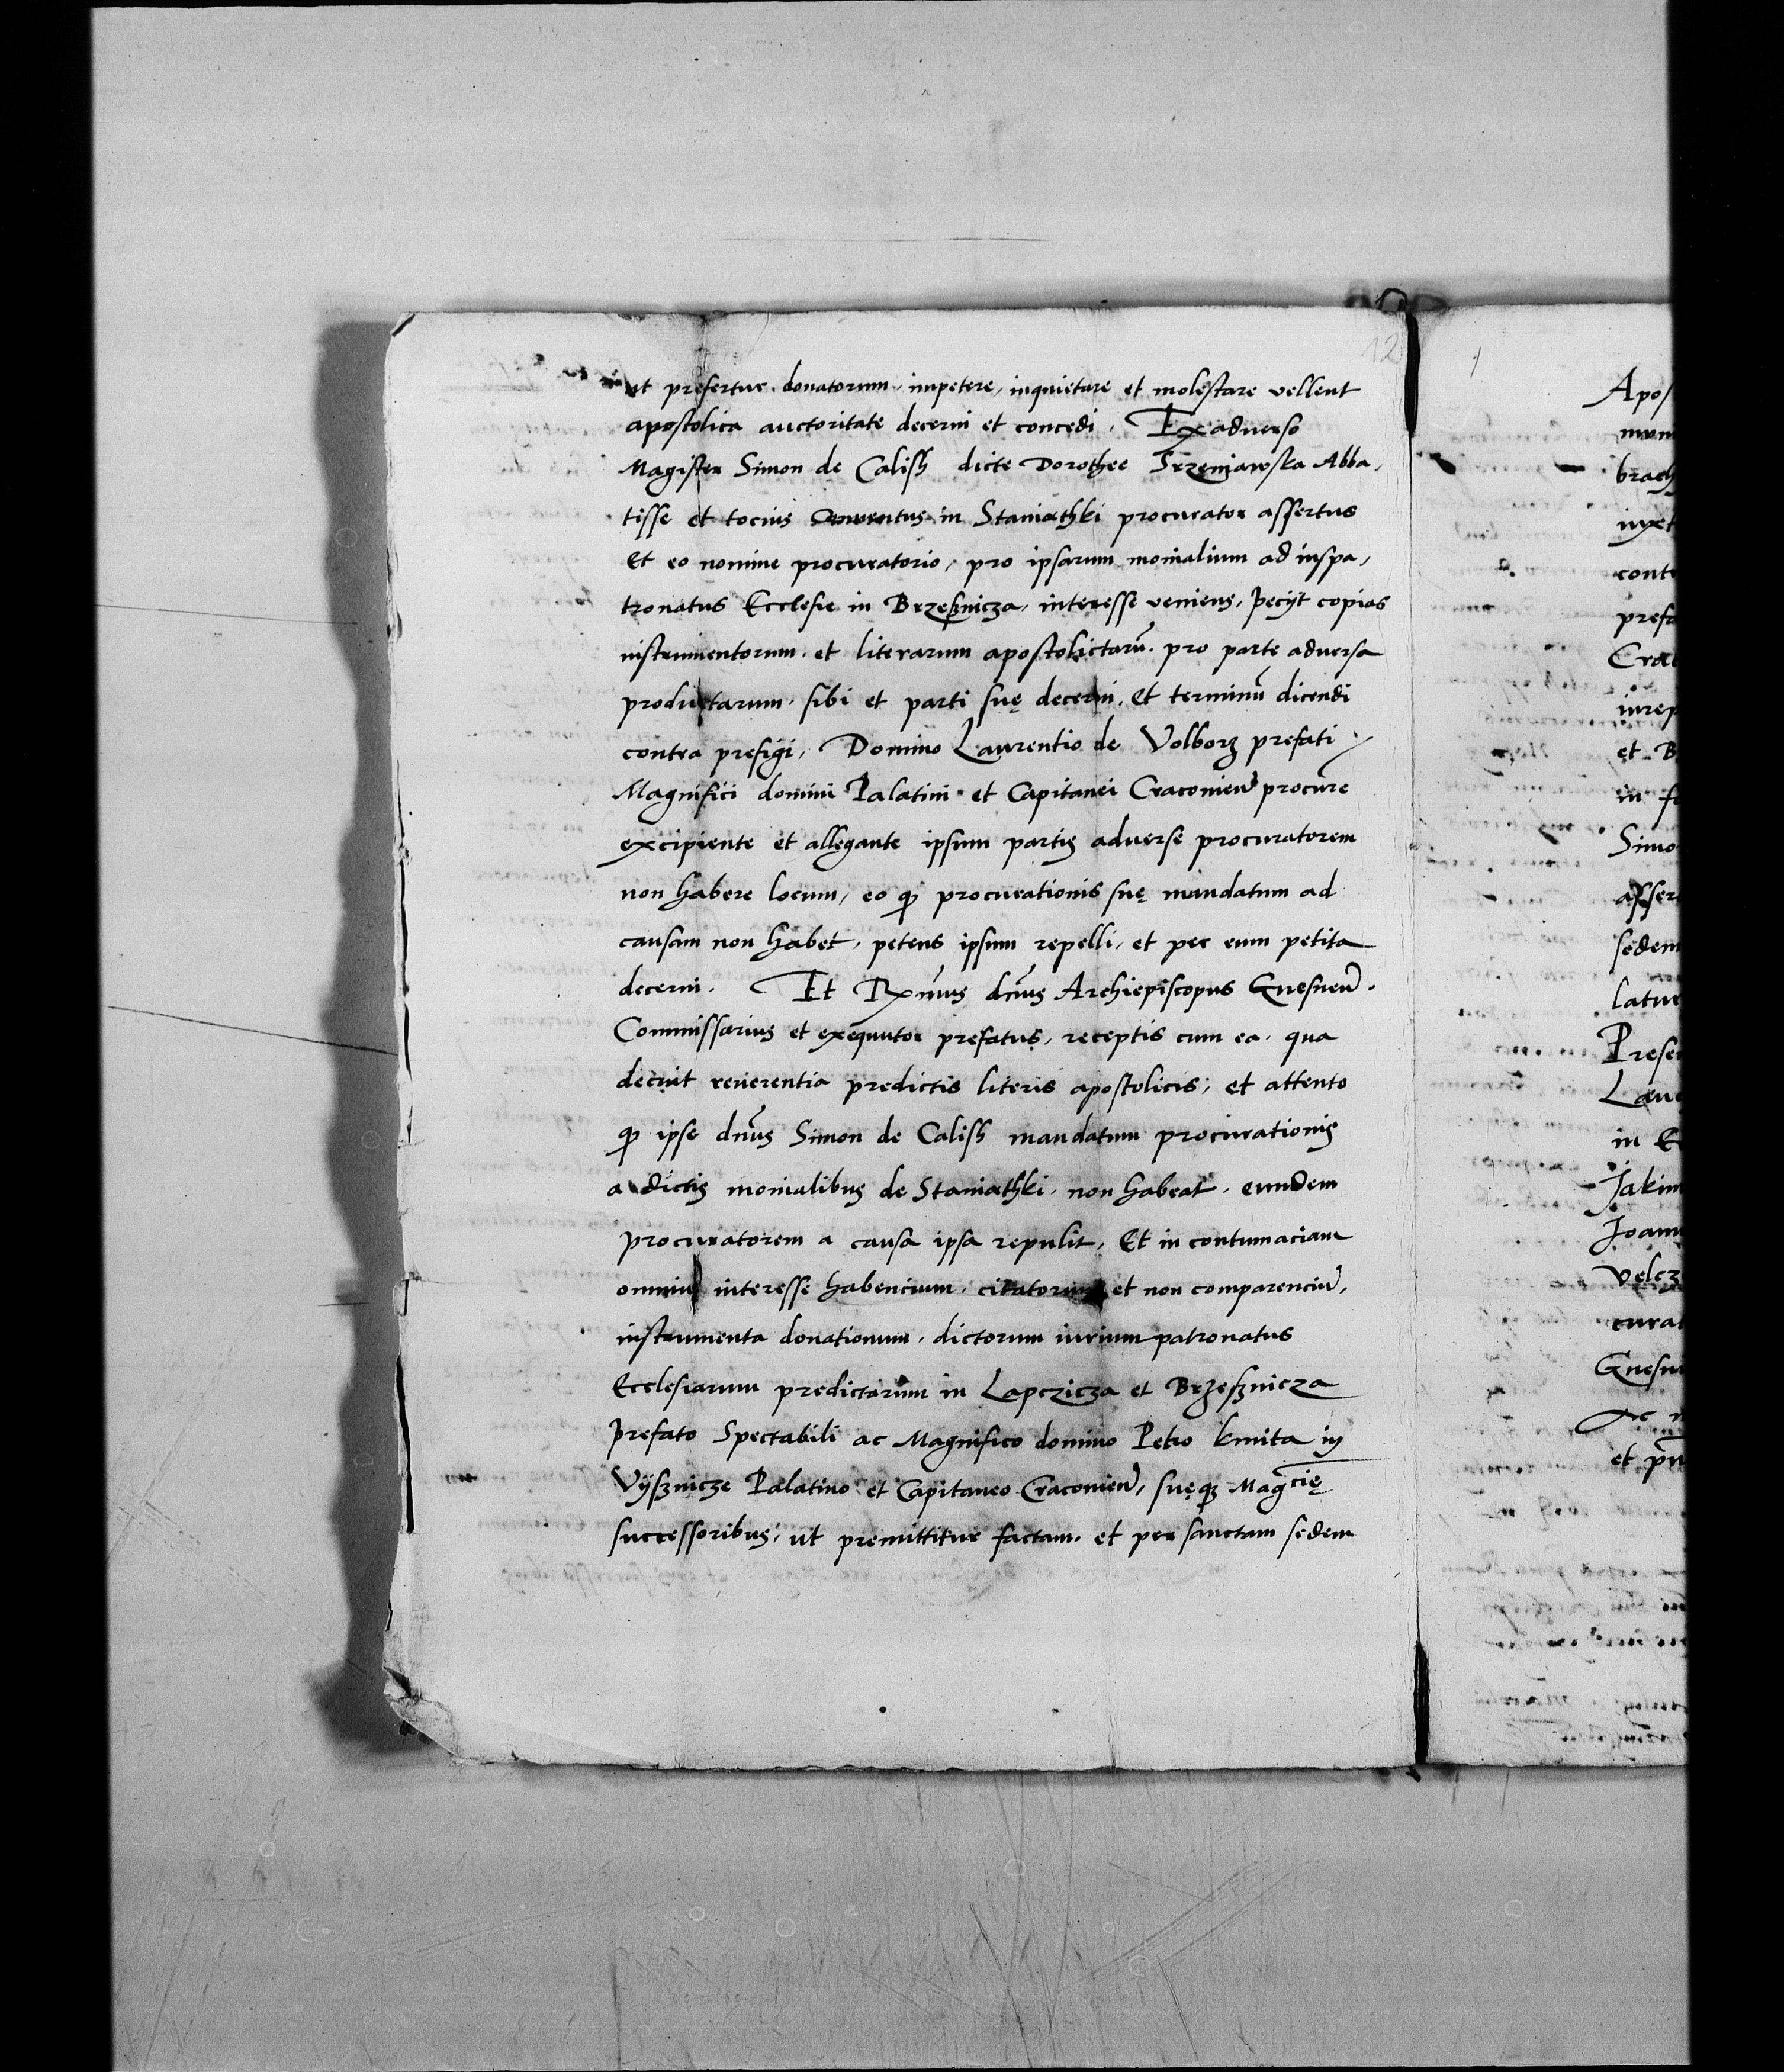 12
ut prefertur donatorum, impetere, inquietare et molestare vellent
apostolica auctoritate decerni et concedi. Ex adverso
Magister Simon de Calissh dicte Dorothee Abba,
tisse et tocius Conventus in Staniathki procurator assertus
et eo nomine procuratorio, pro ipsarum monialium ad iuspa,
tronatus Ecclesie in Brzesznicza, interesse veniens, peciit copias
instrumentorum, et literarum apostolictarū, pro parte adversa
productarum, sibi et parti suę decerni, et terminū dicendi
contra prefigi, Domino Laurentio de Volborz prefati
Magnifici domini Palatini et Capitanei Cracovień procūre
excipiente et allegante ipsum partis adverse procuratorem
non habere locum, eo ꝙ procurationis suę mandatum ad
causam non habet, petens ipsum repelli, et per eum petita
decerni. Et Rx̄mus dn̄us Archiepiscopus Gnesneń.
Commissarius et exequutor prefatus, receptis cum ea, qua
decuit reverentia predictis literis apostolicis, et attento
ꝙ ipse dn̄us Simon de Calissh mandatum procurationis
a dictis monialibus de Staniathki, non habeat, eundem
procuratorem a causa ipsa repulit, Et in contumaciam
omniū interesse habencium, citatorum et non comparenciū,
instrumenta donationum, dictorum iurium patronatus
Ecclesiarum predictarum in Lapczicza et Brzesznicza
prefato Spectabili ac Magnifico domino Petro kmita in
Vijsznicze Palatino et Capitaneo Cracovień, suęqꝫ Mag̅cię
successoribus, ut premittitur factam, et per sanctam sedem
Apos
brach
iuxt
cont
prefa
Cra
iurep
et B
in f
Simo
asser
sedem
latur
Presen
Lau
in E
Jakim
Joann
velcz
curat
Gnesn
Ac
et pn̄